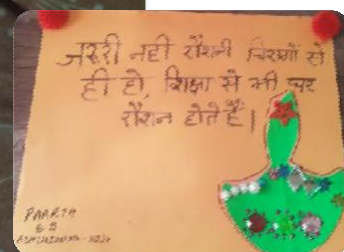 जरूरी नही रौशनी चिरागों से
ही हो, शिक्षा से भी घर
रौशन होते है।
PAARTH